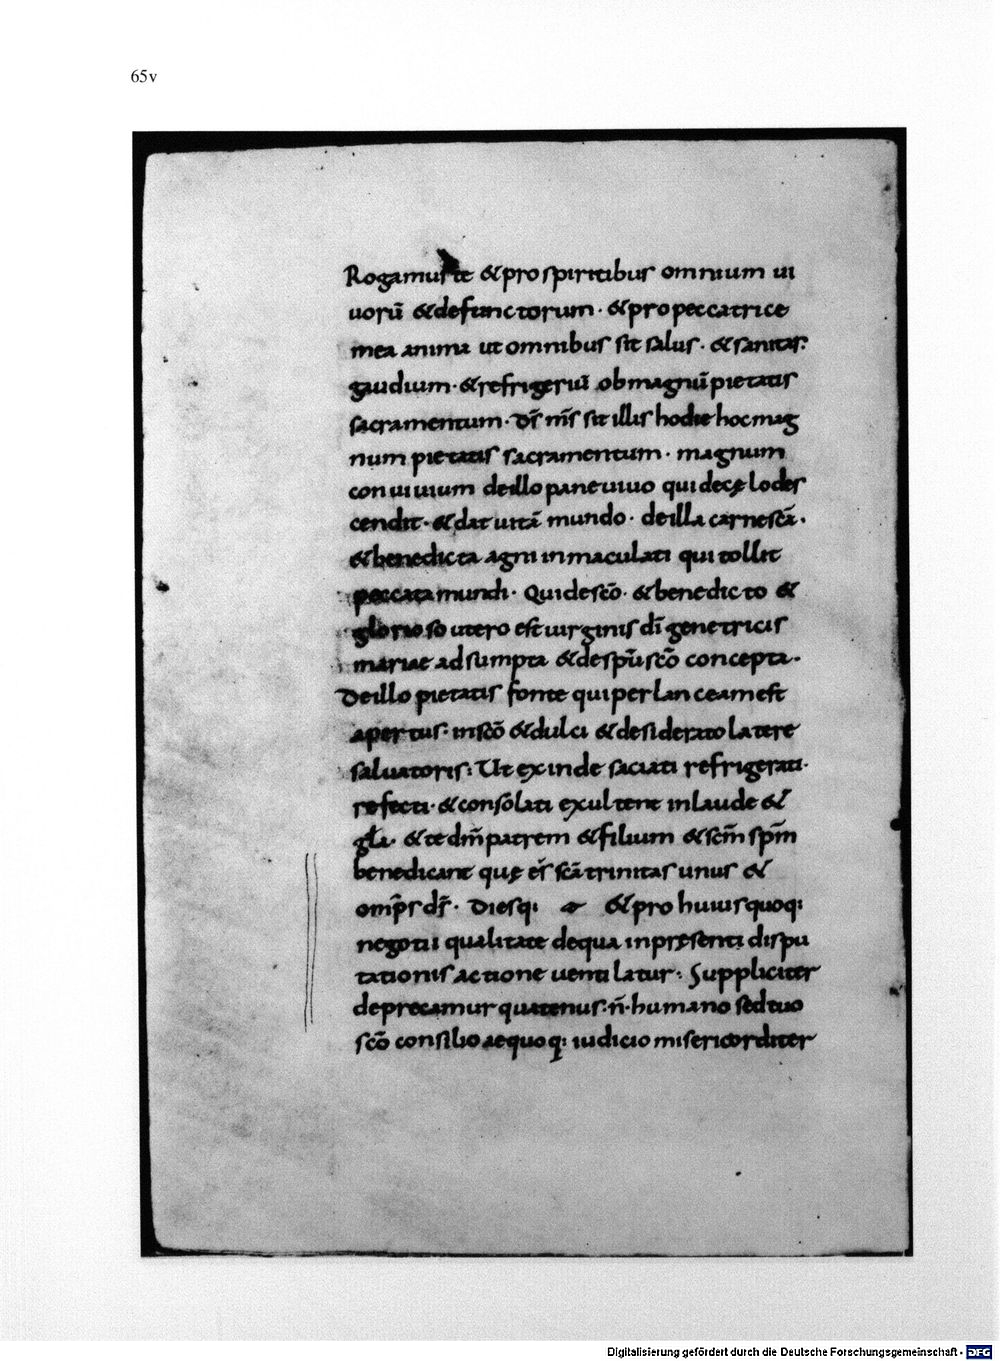 65v
Rogamus te & pro spiritibus omnium ui
uorū & defunctorum · & pro peccatrice
mea anima ut omnibus sit salus · & sanitas ·
gaudium · & refrigeriū ob magnū pietatis
sacramentum · d̄s n̄s sit illis hodie hoc mag
num pietatis sacramentum · magnum
conuiuium de illo pane uiuo qui de cęlo des
cendit · & dat uitā mundo · de illa carne sc̄a ·
& benedicta agni inmaculati qui tollit
peccata mundi · Qui de sc̄o · & benedicto &
glorioso utero est uirginis dī genetricis
mariae adsumpta & de sp̄u sc̄o concepta ·
De illo pietatis fonte qui per lanceam est
apertus · in sc̄o & dulci & desiderato latere
saluatoris : Ut exinde saciati refrigerati ·
refecti · & consolati exultent in laude &
gła · & te dm̄ patrem & filium & sc̄m sp̄m
benedicant quę es̄ sc̄a trinitas unus &
omp̄s ds̄ · Diesq: & pro huius quoq:
negotii qualitate de qua in pręsenti dispu
tationis actione uentilatur : Suppliciter
deprecamur quatenus · n̄ · humano sed tuo
sc̄o consilio aequoq: iudicio misericorditer
Digitalisierung gefördert durch die Deutsche Forschungsgemeinschaft - DFG